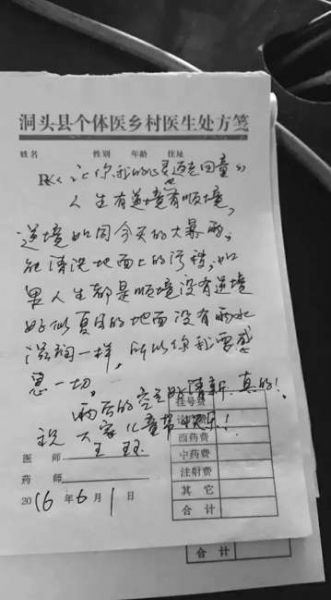 洞头县个体医乡村医生处方笺
姓名 性别 年龄 住址
R《让你我的心灵返老回童》
人生有逆境也有顺境,
逆境如同今天的大暴雨,
能清洗地面上的污秽,如
果人生都是顺境没有逆境
好似夏日的地面没有雨水
滋润一样,所以你我要感
恩一切,
雨后的空气好清新,真的!
祝大家儿童节快乐!
医师 王
药师
2016年6月1日
挂号费
西药费
中药费
注射费
其它
合计
合计